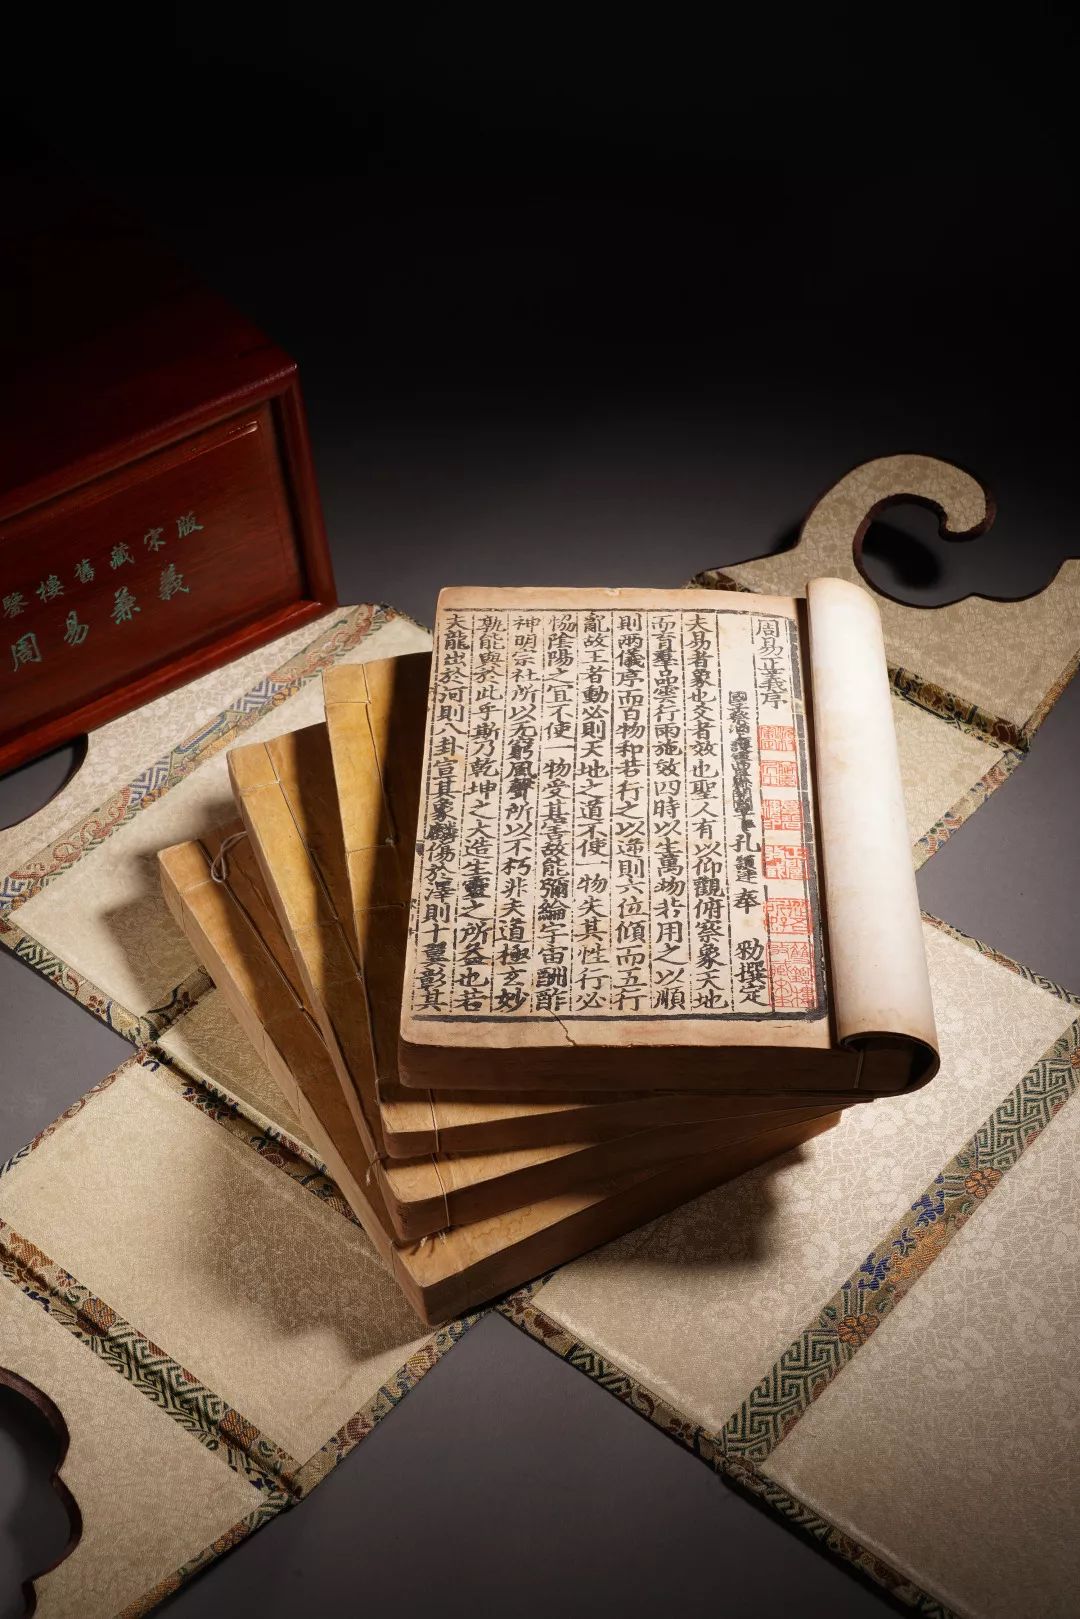 鑒樓舊藏宋版
周易兼義
周易正義序
國子祭酒上護軍曲阜縣開國子臣孔穎達奉 勑撰定
夫易者象也爻者效也聖人有以仰觀俯察象天地
而育羣品雲行雨施效四時以生萬物若用之以順
則兩儀序而百物和若行之以逆則六位傾而五行
亂故王者動必則天地之道不使一物失其性行必
恊陰陽之宜不使一物受其害故能彌綸宇宙酬酢
神明宗社所以无窮風聲所以不朽非夫道極玄妙
孰能與於此乎斯乃乾坤之大造生靈之所益也若
夫龍出於河則八卦宣其象麟傷於澤則十翼彰其